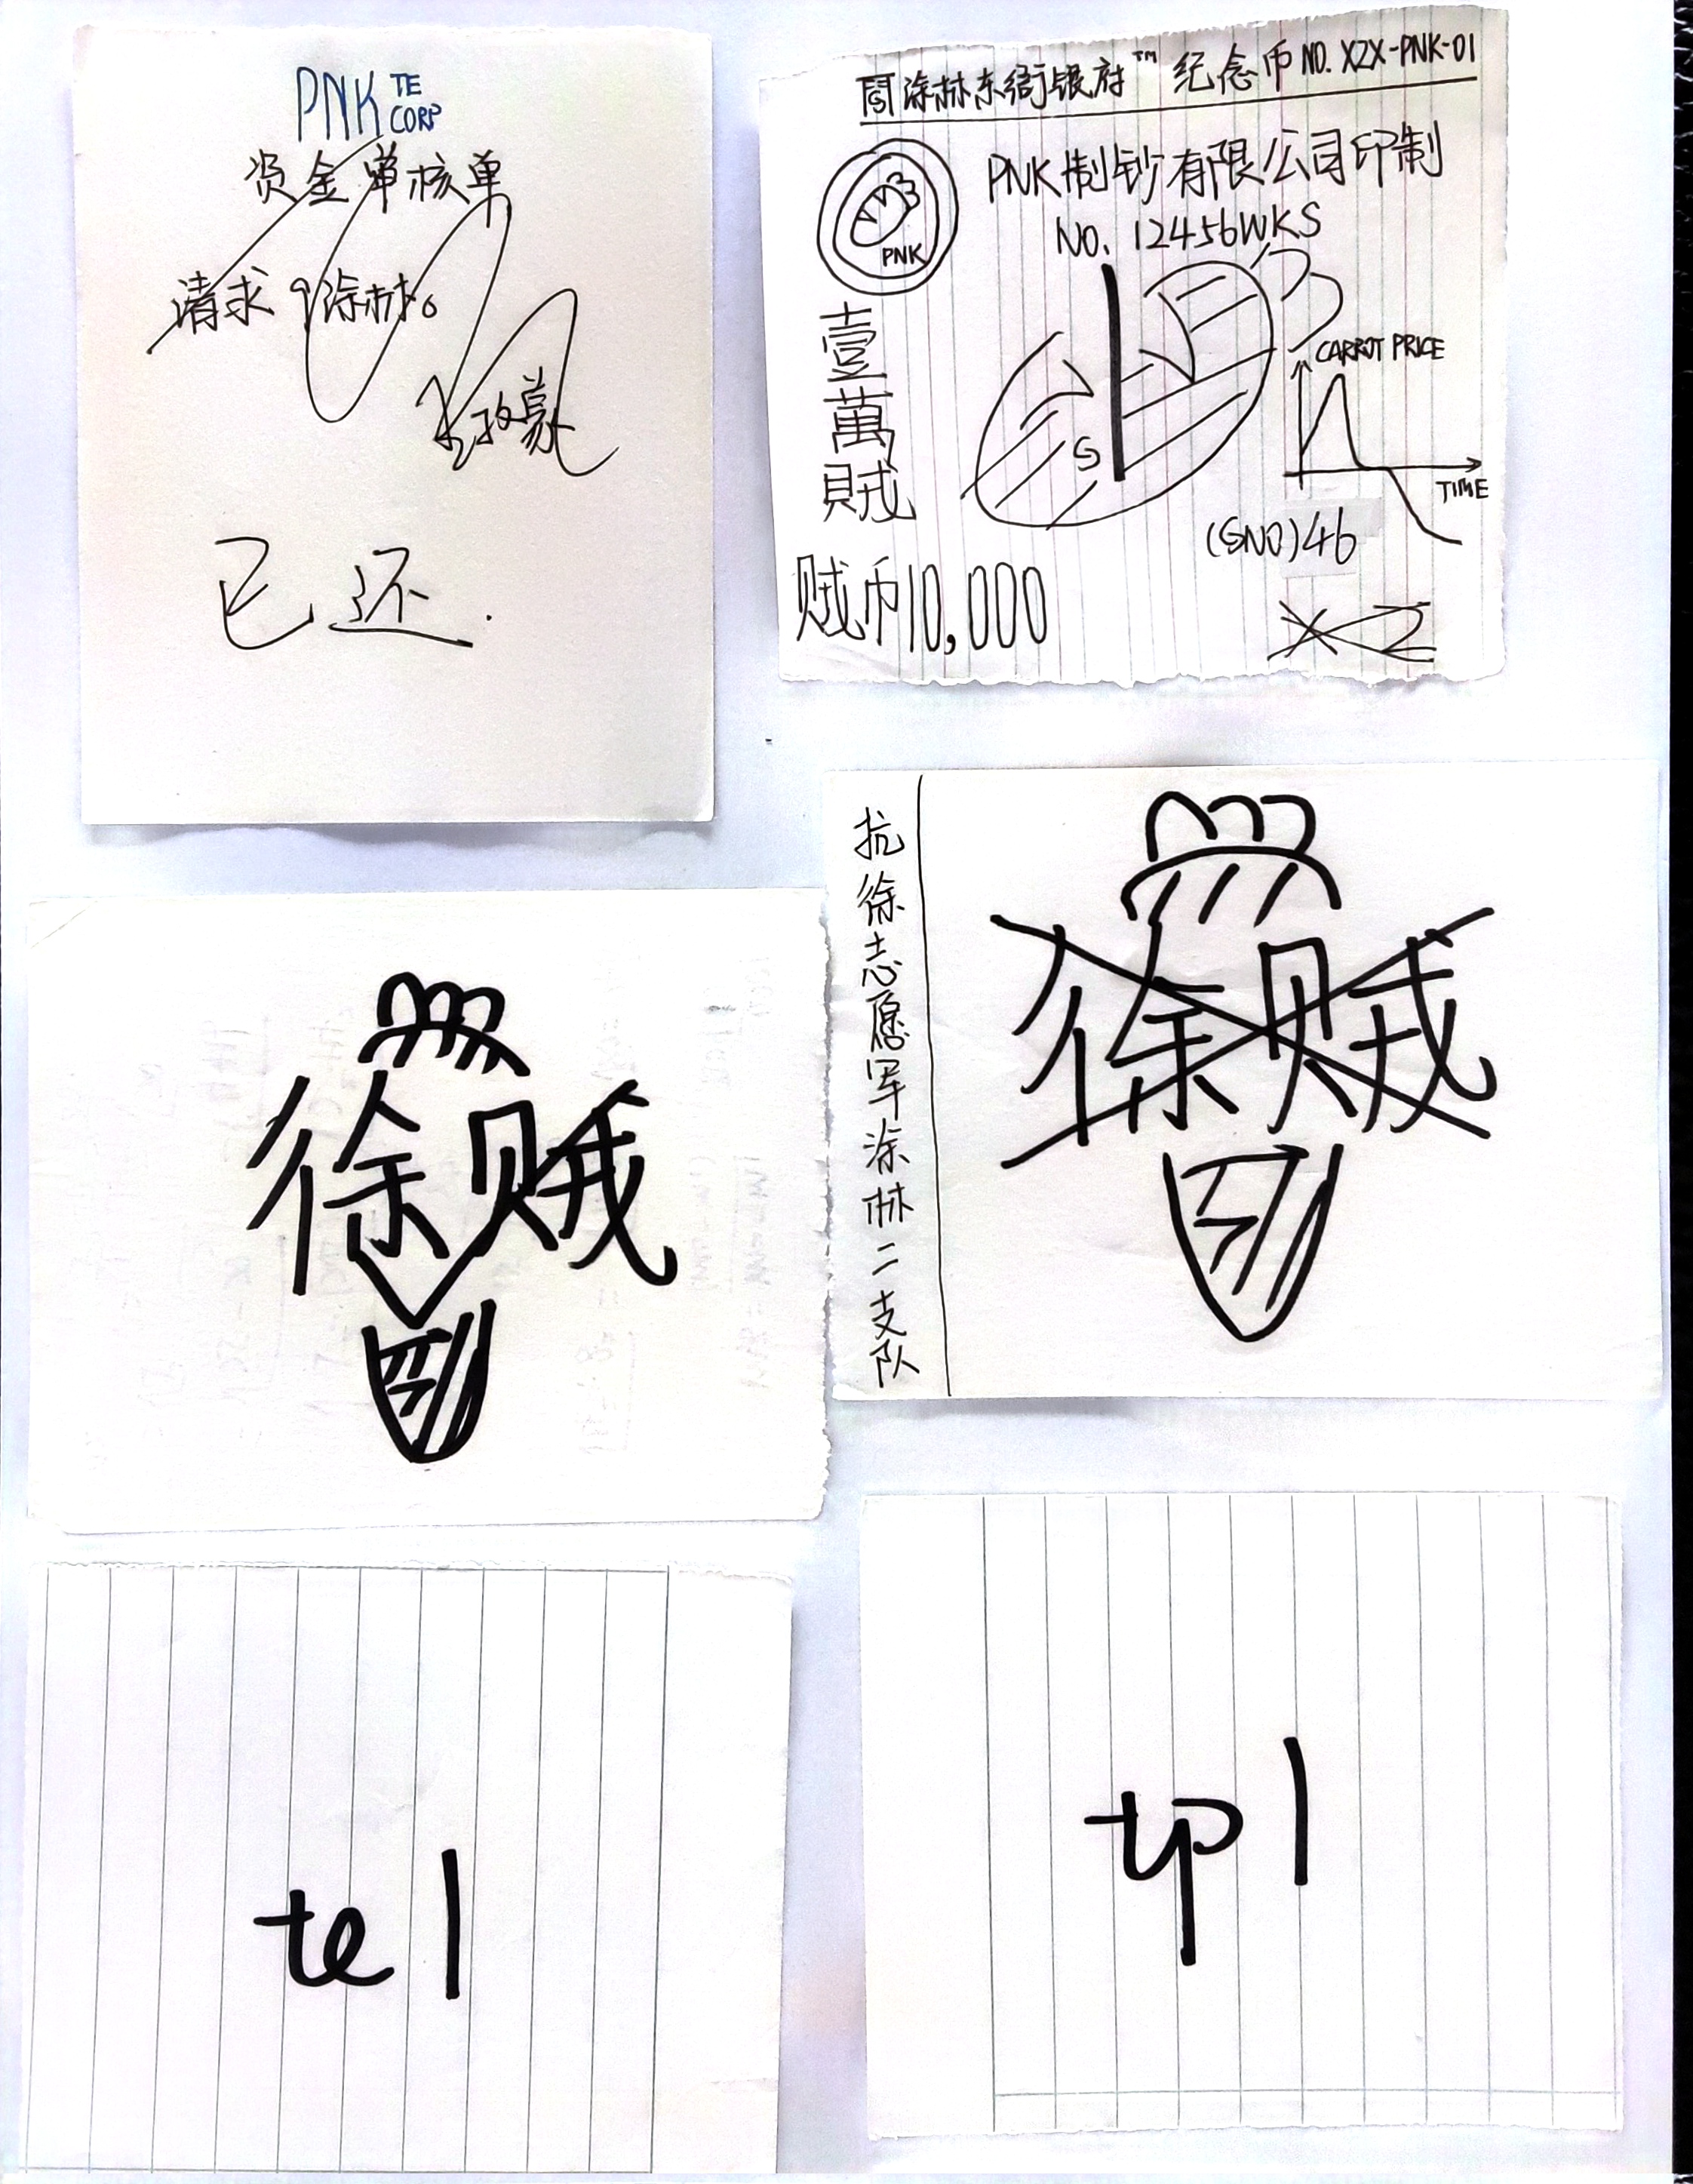 PNK TE
CORP
资金审核单
请求9涂林。
已还.
涂林东衙银府™ 纪念币 NO. XZX-PNK-01
PNK制钞有限公司印制
NO. 12456WKS
PNK
壹萬贼
S
CARROT PRICE
TIME
(SNO)46
贼币10,000
XZ
徐贼
抗徐志愿军涂林二支队
徐贼
te l
tp l